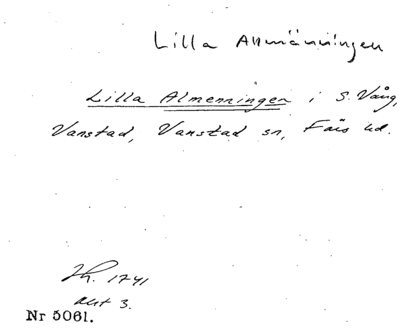 Lilla Allmänningen
Lilla Almenningen i S. Vång,
Vanstad, Vanstad sn, Färs hd.
1741
akt 3.
Nr 5061.